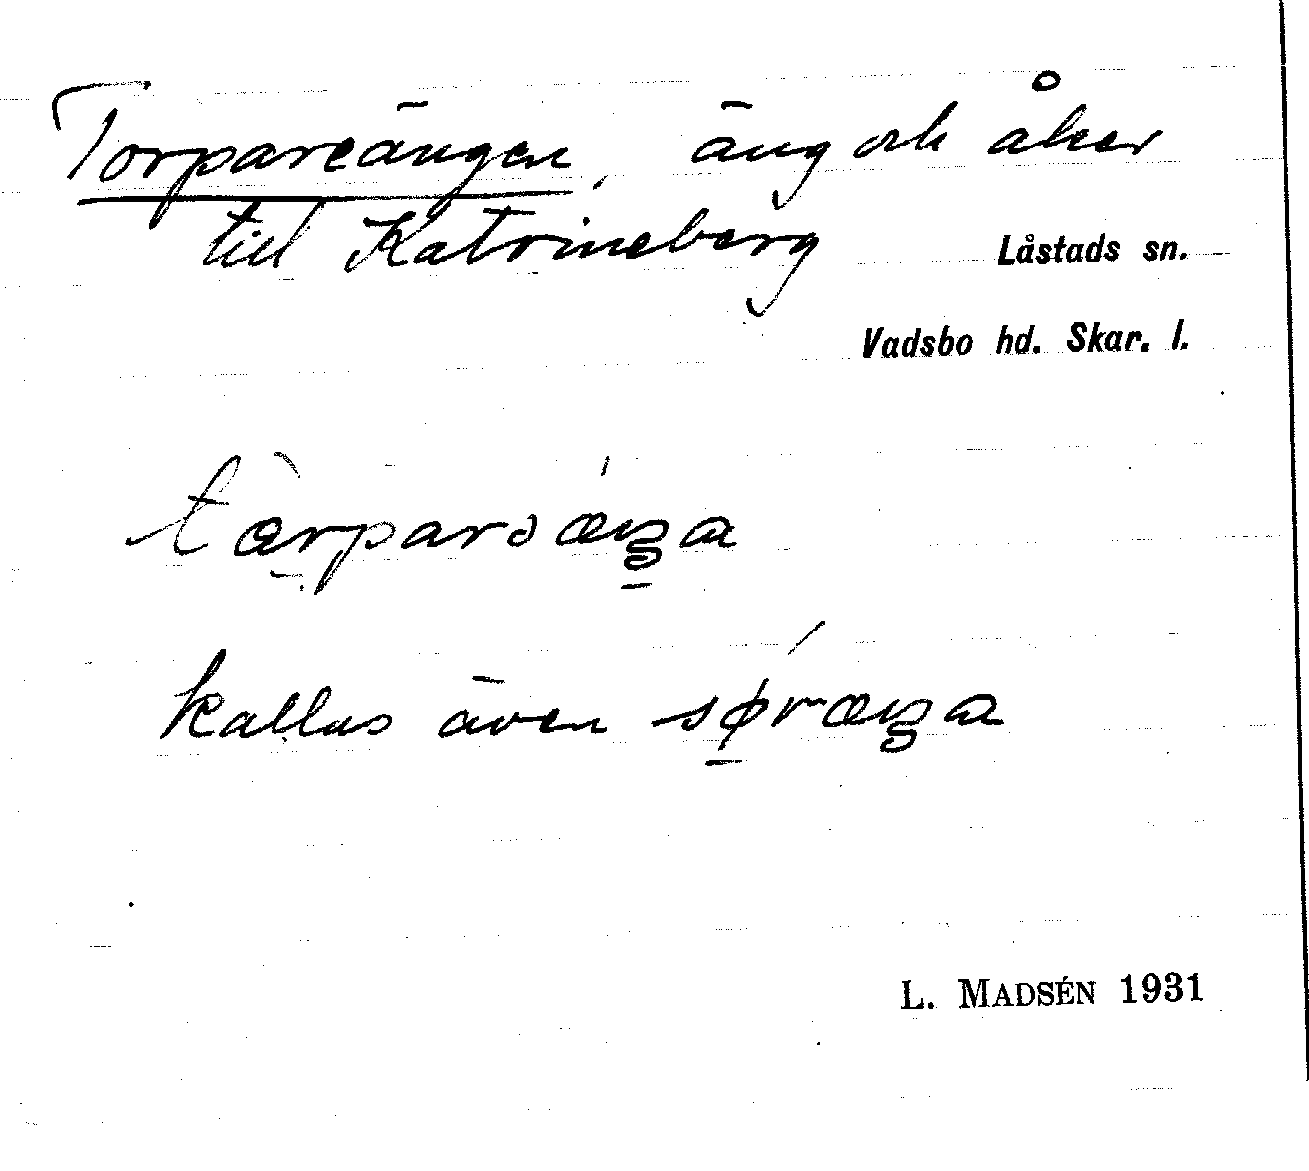 Torpareängen, äng och åker
till Katrineberg
Låstads sn.
Vadsbo hd. Skar. l.
tàrparəæŋa
kallas även søræŋa
L. MADSÉN 1931